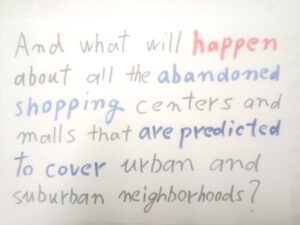 And what will happen
about all the abandoned
shopping centers and
malls that are predicted
to cover urban and
suburban neighborhoods?